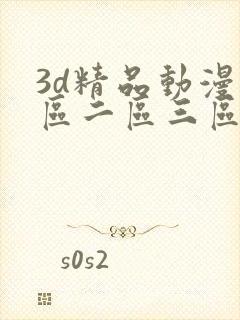 3d精品動漫
區二區三區
s0s2